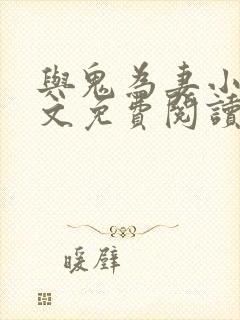 與鬼為妻小
文免費閱讀
暖壁